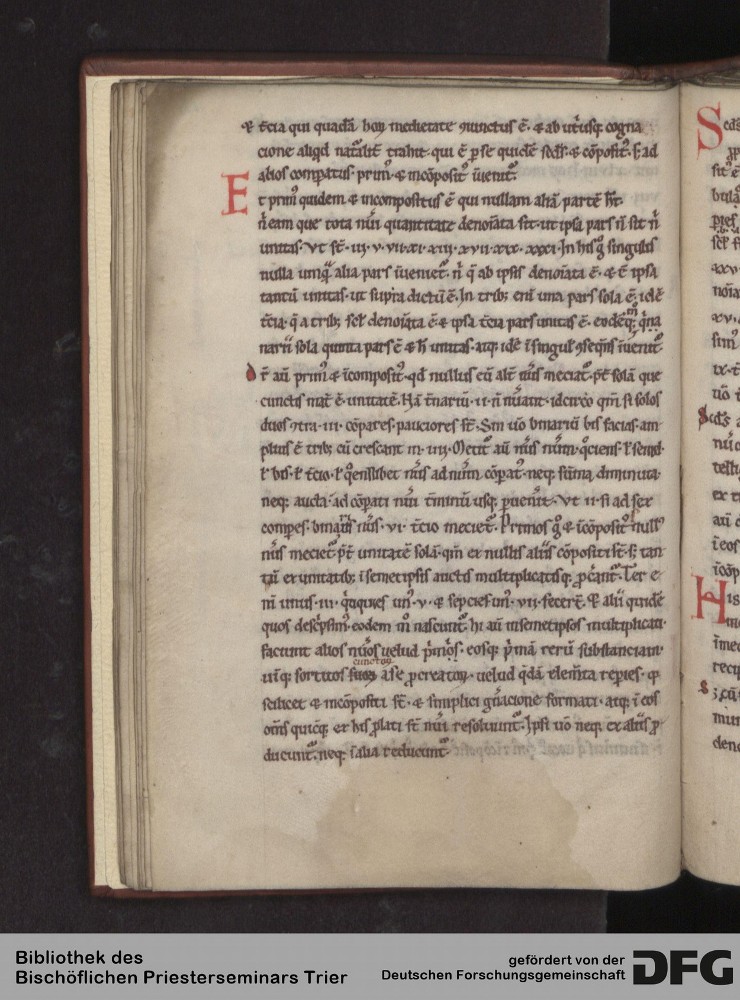 & t̄cia qui quadā hoꝝ medietate ꝯiunctus ē. & ab utͥusq; cogna
cione aliqd nat᷑alit̄ trahit. qui ē ꝑ se quidē secds. & cōposit᷒. s; ad
alios comparatus. prim᷒. & incōposit᷒ īuenit᷑.
Et prim᷒ quidem & incompositus ē qui nullam aliā partē h̄t.
n̄ eam que tota nūi quantitate denoīata sit. ut ipsa pars n̄ sit n̄
unitas. Vt st̄. iij. v. vii. xi. xiij. xvii. xix. xxxi. In his ḡ singulis
nulla umq̄ alia pars īueniet᷑. n̄ q̄ ab ipsis denoīata ē. & t̄ ipsa
tantū unitas. ut supra dictū ē. In trib; eni una pars sola ē. idē
t̄cia. q̄ a trib; scł denoīata ē. & ipsa t̄cia pars unitas ē. eodēq; m̊ q̇na
narii sola quinta pars ē & h̄ unitas. atq; idē ī singul ꝯseq̄ns īuenit᷑.
Dr̄ au prim᷒ & īcomposit᷒. qd nullus eū alt̄ nūs meciat᷑. p̄t solā que
cunctis mat̄ ē. unitatē. Nā t̄nariū. ii. n̄ nūant. idcirco qm̄ si solos
duos ꝯtra. iii. cōpares. pauciores st̄. Sin uō binariū bis facias. am
plius ē trib; cū crescant in. iiij. Metit᷑ au nūs nūm. q̊ciens. ł semł.
ł bis. ł t̄cio. ł q̊tienslibet nūs ad nūm cōparat᷒. neq; sūma diminuta.
neq; aucta. ad cōpati nūi t̄minū usq; ꝑuenit̄. Vt. ii. si ad sex
compes. binari᷒ nūs. vi. t̄cio meciet᷑. Primos ḡ & īcōposit᷒ null᷒
nūs meciet᷑ p̄t unitatē solā. qm̄ ex nullis aliis cōpositi st̄. s; tan
tū ex unitatib; ī semetipsis auctis multiplicatisq; ꝓcant᷑. Ter e
ni unus. iii. q̇nquies un᷒. v. & sepcies un᷒. vii. fecert̄. & alii quidē
quos desc̄psim᷒. eodem m̊ nascunt᷑. hi au in semetipsos multiplicati.
faciunt alios nūos uelud p̄mos. eosq; p̄mā rerū substanciam.
uīq; sortitos cunctoꝝ a se ꝓcreatoꝝ. uelud q̄dā elem̄ta reperies. q̇
scilicet & incōpositi st̄. & simplici gn̄acione formati. atq; ī eos
oms quicq; ex his ꝓlati st̄ nūi resoluunt᷑. Ipsi uō neq; ex aliis ꝓ
ducunt᷑. neq; ī alia reducunt᷑.
Bibliothek des
Bischöflichen Priesterseminars Trier
gefördert von der
Deutschen Forschungsgemeinschaft
DFG